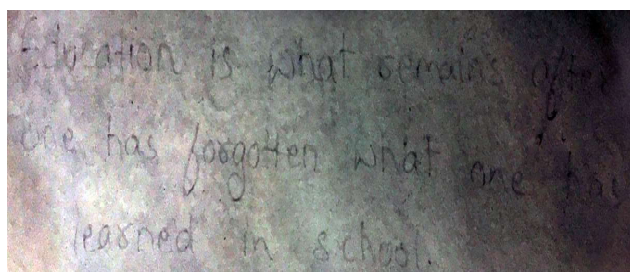 Education is what remains after
one has forgotten what one has
learned in school.